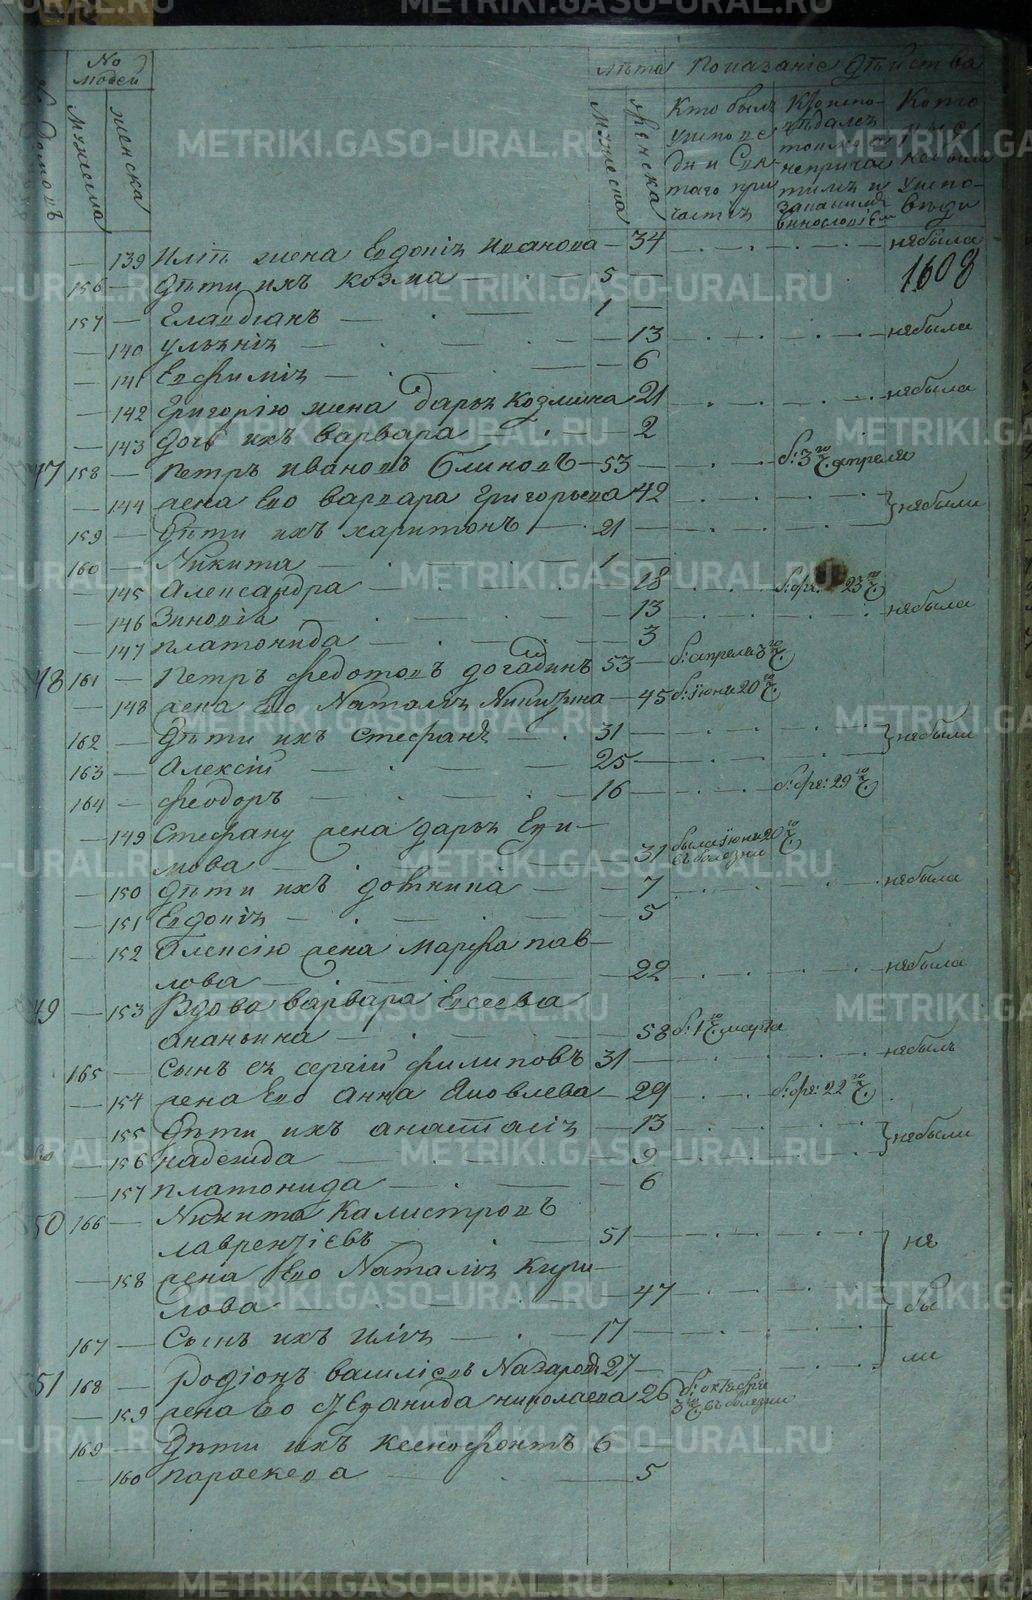 No людей
Лѣта Показаніе Дѣйства
№ домовъ
мужеска
женска
мужеска
женска
Кто былъ у исповѣди и Святаго причастія
Кто исповѣдался токмо и не причастился и за какимъ винословіемъ
Кто не былъ у исповѣди
— 139 Иліѣ жена Евдокія Иванова — 34 небыла
156 — Дѣти ихъ Козма — 5 —
1608
157 — Елавдіанъ — 1 —
— 140 Ульянія — 13 небыла
— 141 Евфимія — 6
— 142 Григорію жена Дарья Козмина 21 небыла
— 143 Дочь ихъ Варвара — 2
47 158 — Петръ Ивановъ Блиновъ — 53 — б: 3го ч. апреля
— 144 жена Его Варвара Григорьева 42 небыли
159 — Дѣти ихъ Харитонъ — 21
160 — Никита — 1 —
— 145 Александра — 18 б: фе: 23го ч.
— 146 Зиновія — 13 небыла
— 147 Платонида — 3
48 161 — Петръ Федотовъ Догадинъ 53 — б: апреля 3го ч.
— 148 жена Его Наталья Никитина — 45 б: іюня 20го ч.
162 — Дѣти ихъ Стефанъ — 31 — небыли
163 — Алексій — 25 —
164 — Феодоръ — 16 — б: фе: 29го ч.
— 149 Стефану жена Дарья Ефи-
мова — 31 была іюня 20го ч. въ болезни
— 150 Дѣти ихъ Домникія — 7 небыла
— 151 Евдокія — 5
— 152 Алексію жена Марфа Пав-
лова — 22 небыла
49 — 153 Вдова Варвара Евсеева
Ананьина — 58 б: 1го ч. марта
165 — Сынъ ея Сергій Филиповъ 31 — небылъ
— 154 жена Его Анна Яковлева — 29 б: фе: 22го ч.
— 155 Дѣти ихъ Анастасія — 13 небыли
— 156 Надежда — 9
— 157 Платонида — 6
50 166 — Никита Калистровъ
Лаврентіевъ — 51 не
— 158 жена Его Наталья Кири-
лова — 47 бы
167 — Сынъ ихъ Илія — 17 ли
51 168 — Родіонъ Василіевъ Назаровъ 27 —
— 159 жена Его Степанида Николаева 26 б: октября 3го ч. въ болезни
169 — Дѣти ихъ Ксенофонтъ 6 —
— 160 Параскева — 5
METRIKI.GASO-URAL.RU